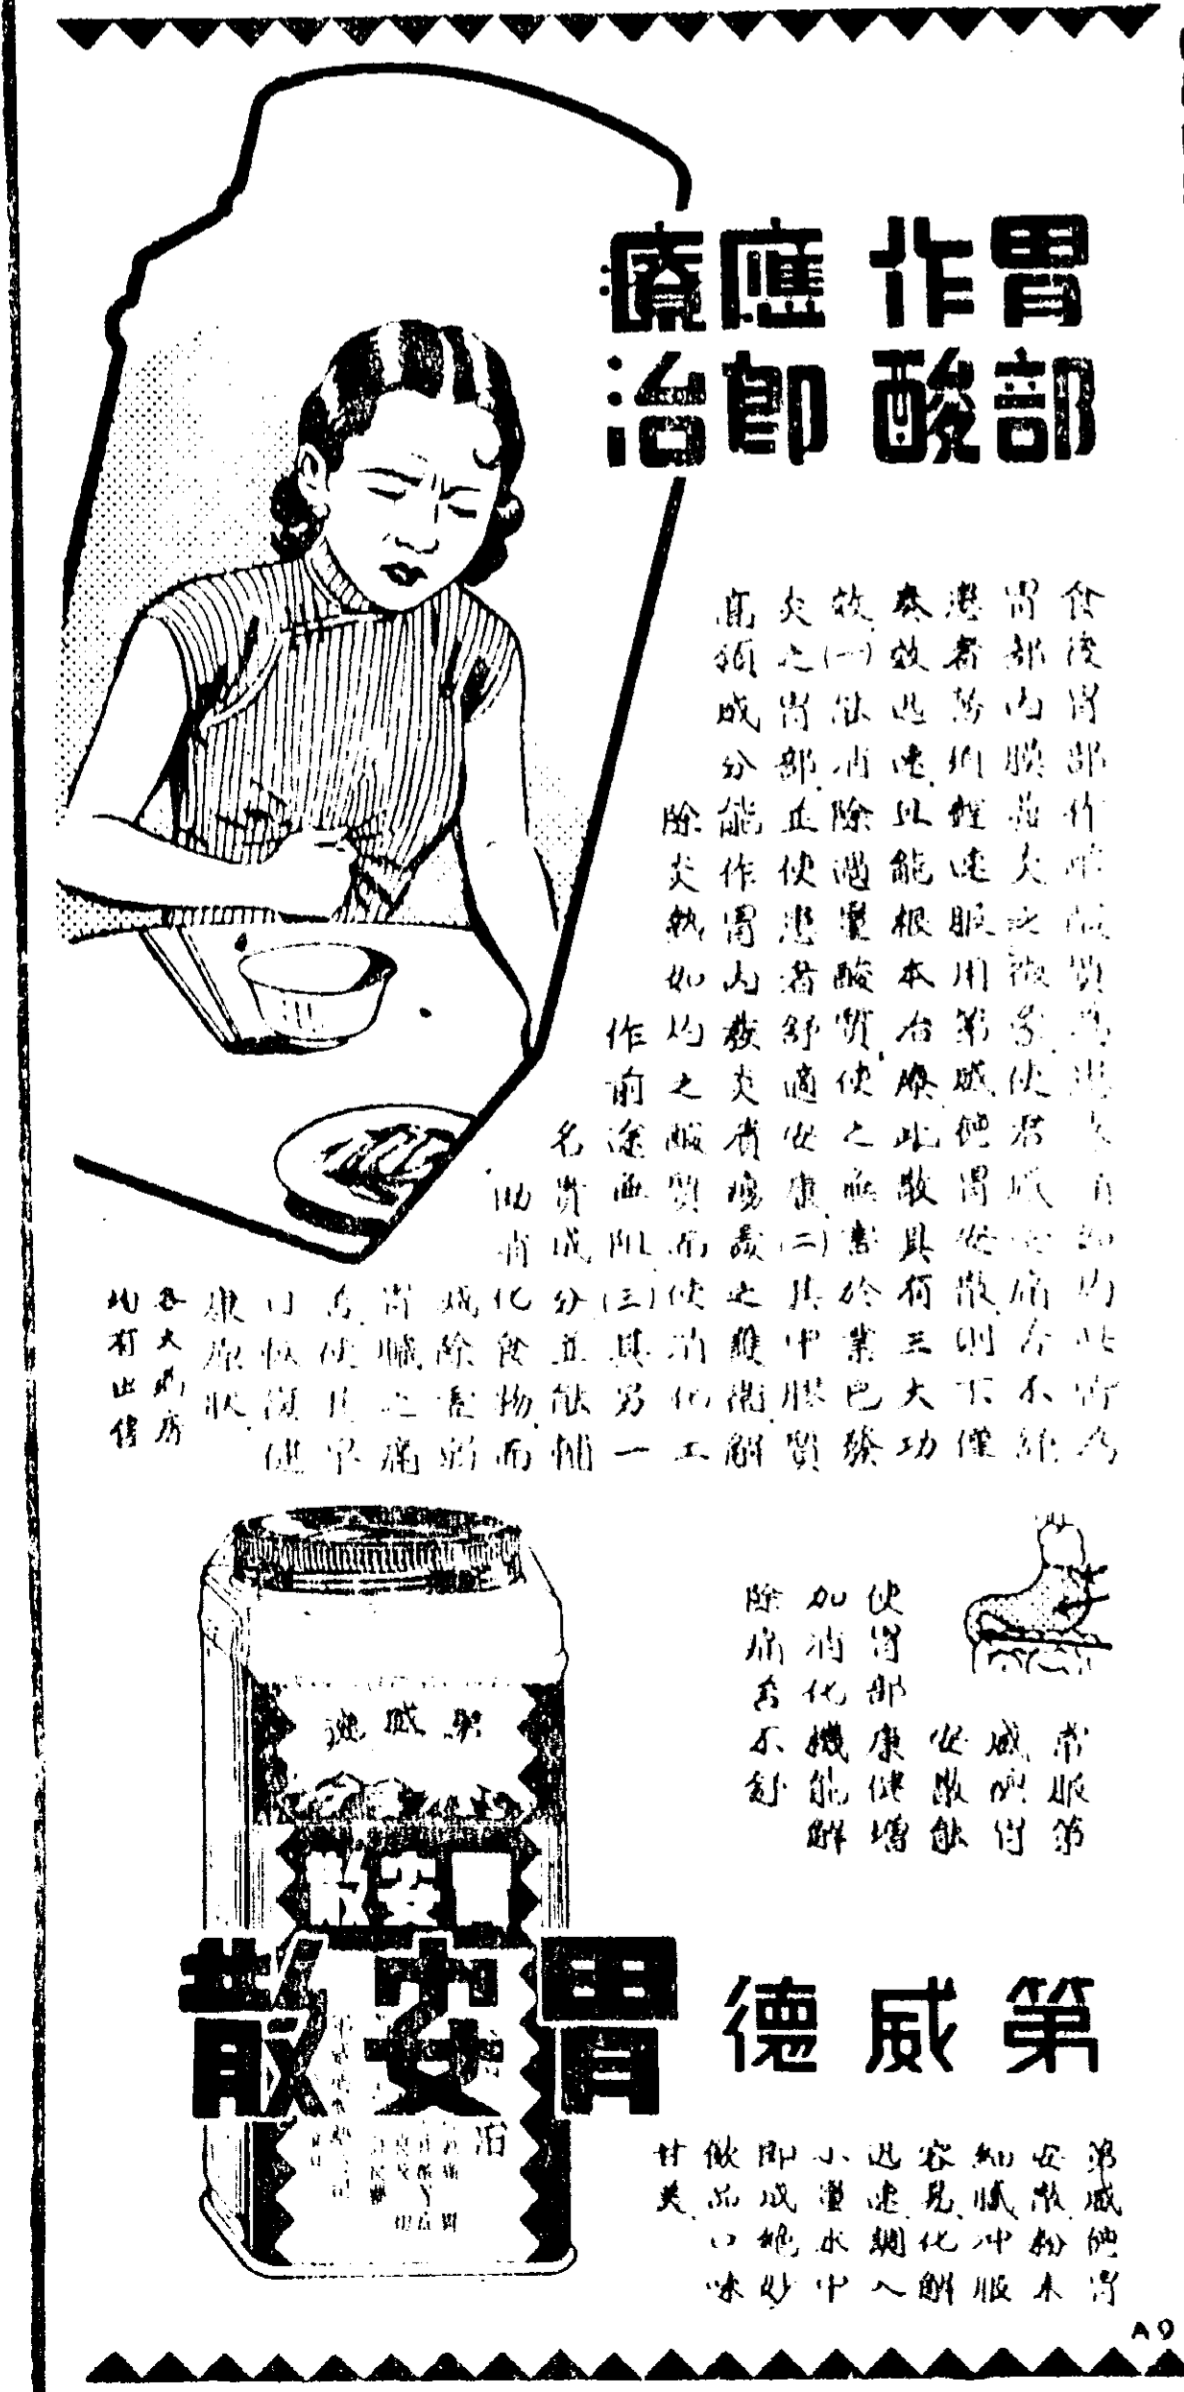 胃部
作酸
應即
療治
食後胃部作酸質大有如灼此皆為
胃部內膜發炎之徵象使君感痛苦不絕
患者務須趕速服用第威德胃安散則不僅
奏效迅速且能根本治療此散具有三大功
效(一)能消除過量酸質使之無害於業已發
炎之胃部並使患者舒適安康(二)其中膠質
高嶺成分能作胃內發炎之護衛解
除炎熱如灼之酸質而使消化工
作前途無阻(三)其另一
名貴成分並能輔
助消化食物而
減除衰弱
胃臟之痛
苦使其早
日恢復健
康原狀
各大藥房
均有出售
常服第
威德胃
安散能
使胃部康健增
加消化機能解
除痛苦不舒
第威德
胃安散
第威德胃安散
第威德胃
安散粉末
細膩沖服
容易化解
迅速調入
小量水中
即成絕妙
飲品口味
甘美
A9